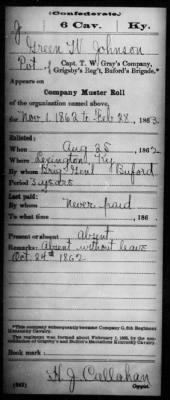 (Confederate.)
J 6 Cav. Ky.
Green W. Johnson
Pvt. of Capt. T. W. Gray's Company,
Grigsby's Reg't, Buford's Brigade.*
Appears on
Company Muster Roll
of the organization named above,
for Nov. 1, 1862 to Feb 28, 1863.
Enlisted:
When Aug 25, 1862
Where Lexington, Ky
By whom Brig Genl Buford
Period 3 years
Last paid:
By whom Never paid
To what time , 186 .
Present or absent Absent
Remarks: Absent without leave
Oct 24th 1862
*This company subsequently became Company G, 6th Regiment
Kentucky Cavalry.
Book mark:
H. J. Callahan
Copyist.